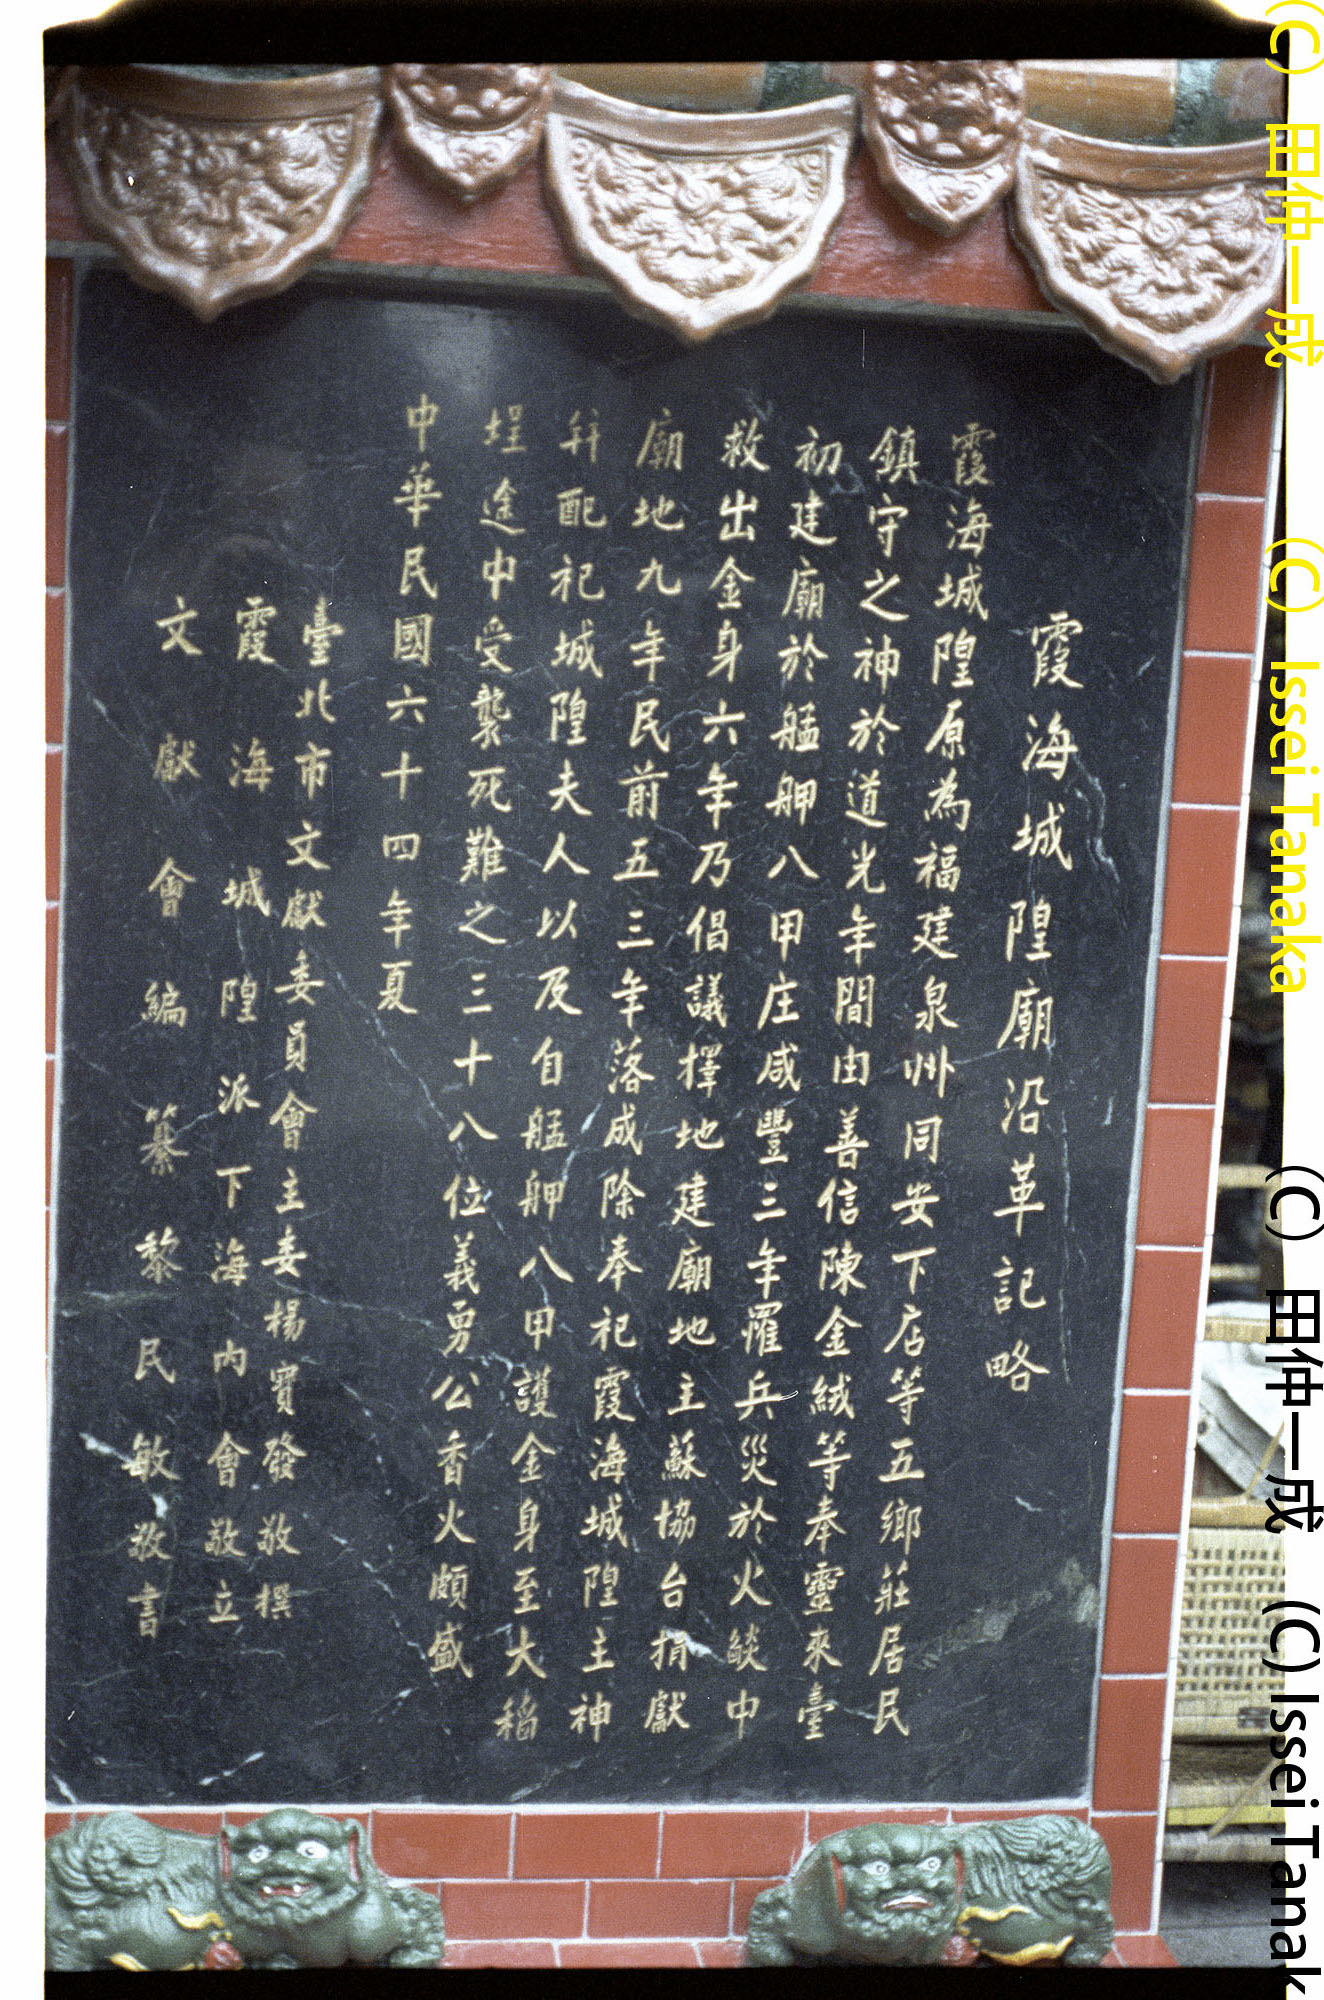 霞海城隍廟沿革記略
霞海城隍原為福建泉州同安下店等五鄉莊居民
鎮守之神於道光年間由善信陳金絨等奉靈來臺
初建廟於艋舺八甲庄咸豐三年罹兵災於火燄中
救出金身六年乃倡議擇地建廟地主蘇協台捐獻
廟地九年民前五三年落成除奉祀霞海城隍主神
并配祀城隍夫人以及自艋舺八甲護金身至大稻
埕途中受襲死難之三十八位義勇公香火頗盛
中華民國六十四年夏
臺北市文獻委員會主委楊寶發敬撰
霞海城隍派下海內會敬立
文獻會編纂黎民敏敬書
(C) 田仲一成 (C) Issei Tanaka
(C) 田仲一成 (C) Issei Tanak